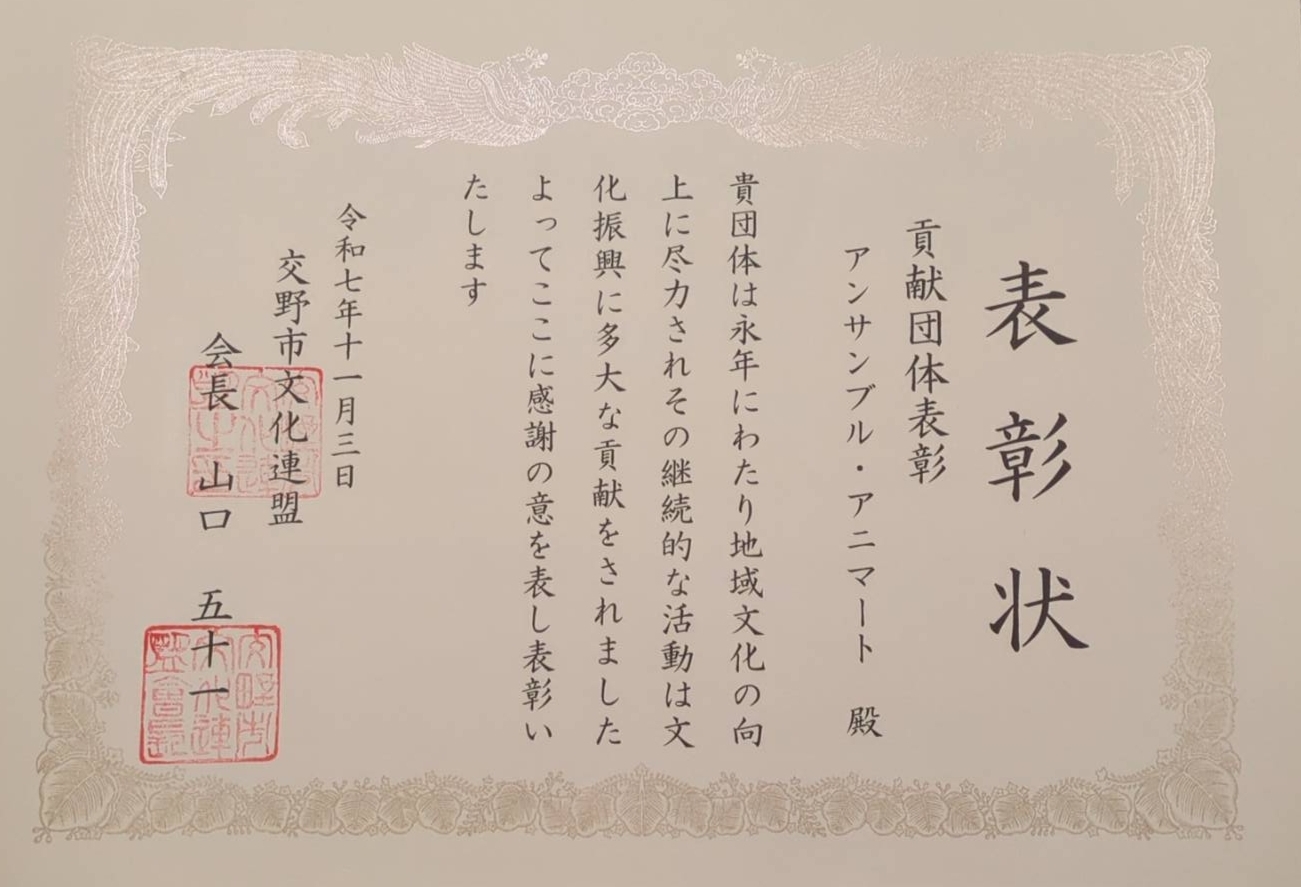 表彰状
貢献団体表彰
アンサンブル・アニマート 殿
貴団体は永年にわたり地域文化の向
上に尽力されその継続的な活動は文
化振興に多大な貢献をされました
よってここに感謝の意を表し表彰い
たします
令和七年十一月三日
交野市文化連盟
会長 山口 五十一